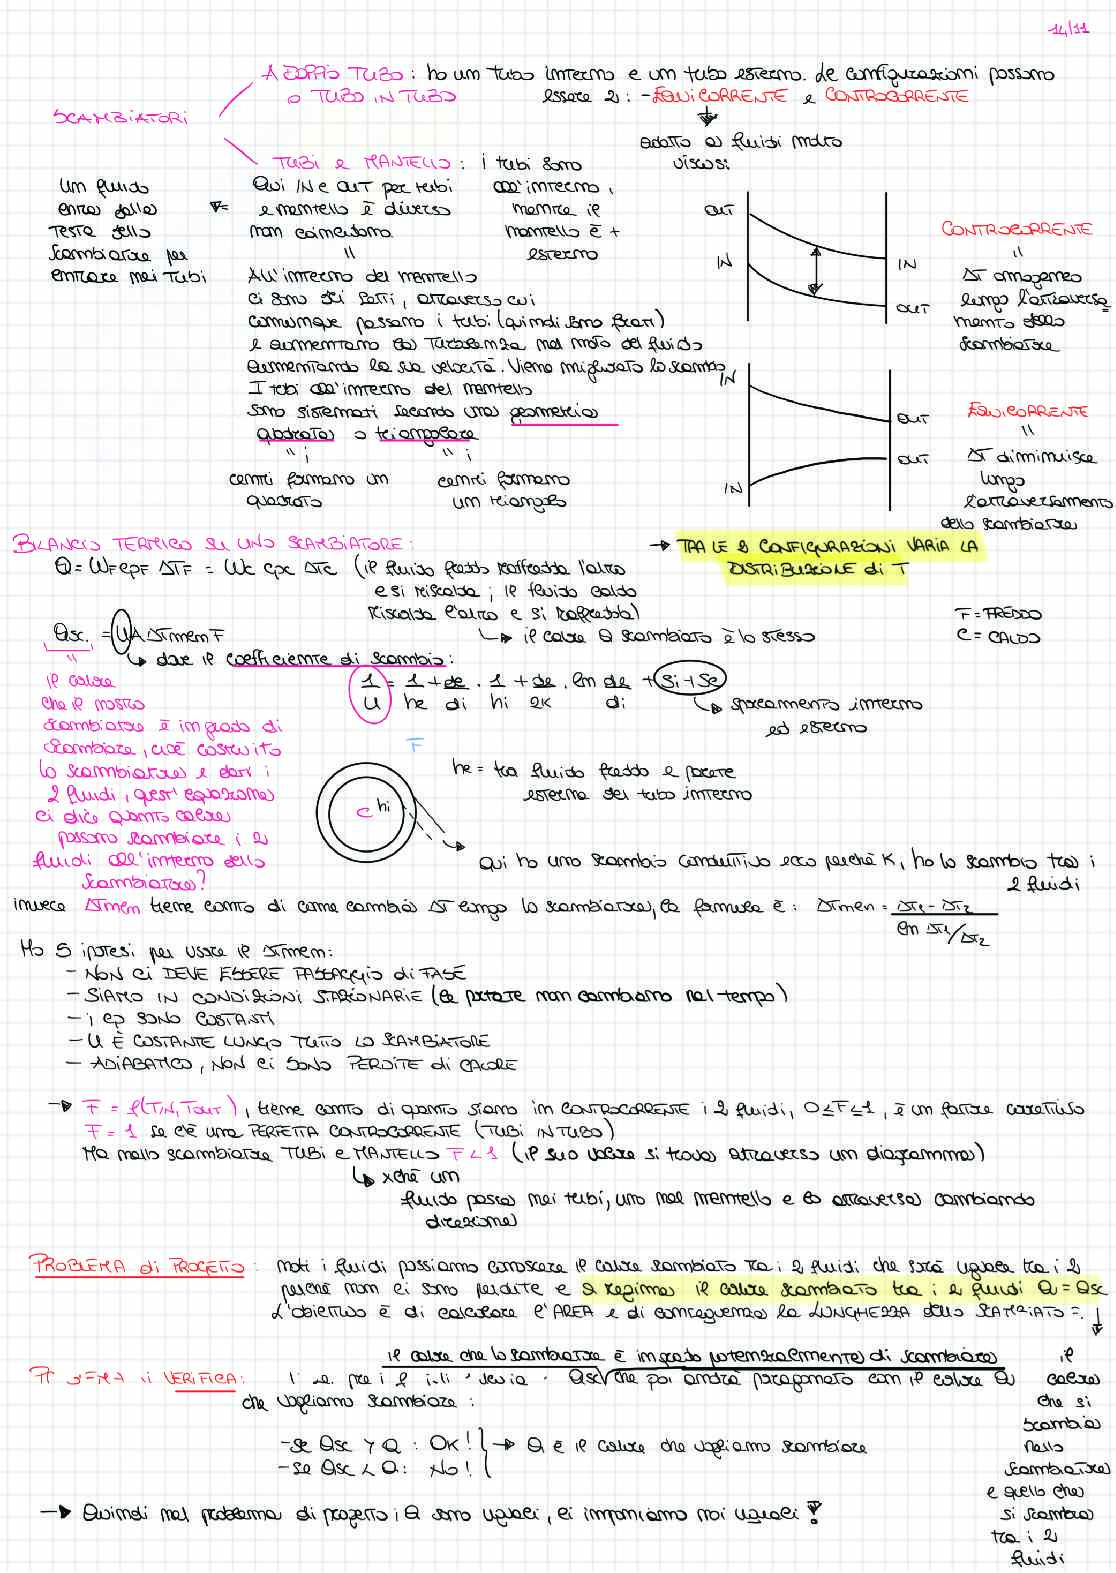 14/11
A DOPPIO TUBO : ho un tubo interno e un tubo esterno. Le configurazioni possono
O TUBO IN TUBO
essere 2 : - EQUICORRENTE e CONTROCORRENTE
SCAMBIATORI
adatto a fluidi molto
viscosi
TUBI e MANTELLO : i tubi sono
all'interno,
mentre il
mantello è +
esterno
Qui IN e OUT per tubi
e mantello è diverso
non coincidono
un fluido
entra dalla
testa dello
scambiatore per
entrare nei tubi
All'interno del mantello
ci sono dei setti, attraverso cui
comunque passano i tubi (quindi sono forati)
e aumentano la turbolenza nel moto del fluido
aumentando la sua velocità. Viene migliorato lo scambio
I tubi all'interno del mantello
sono sistemati secondo una geometria
quadrata o triangolare
" i " i
centri formano un
quadrato
centri formano
un triangolo
OUT
IN
IN
OUT
CONTROCORRENTE
"
ΔT omogeneo
lungo l'attraversa=
mento dello
scambiatore
IN
OUT
OUT
IN
EQUICORRENTE
"
ΔT diminuisce
lungo
l'attraversamento
dello scambiatore
→ TRA LE 2 CONFIGURAZIONI VARIA LA
DISTRIBUZIONE di T
BILANCIO TERMICO SU UNO SCAMBIATORE:
Q = WF cpF ΔTF = Wc cpc ΔTc (il fluido freddo raffredda l'altro
e si riscalda ; il fluido caldo
riscalda l'altro e si raffredda)
↳ il calore Q scambiato è lo stesso
F = FREDDO
C = CALDO
Qsc. = U A ΔTmen F
↳ dove il coefficiente di scambio :
1/U = 1/he + de/di · 1/hi + de/2K · ln de/di + Si + Se
↳ sporcamento interno
ed esterno
"
il calore
che il nostro
scambiatore è in grado di
scambiare, cioè costruito
lo scambiatore e dati i
2 fluidi, quest'equazione
ci dice quanto calore
possono scambiare i 2
fluidi all'interno dello
scambiatore?
F
C hi
he = tra fluido freddo e parete
esterna del tubo interno
qui ho uno scambio conduttivo ecco perché K, ho lo scambio tra i
2 fluidi
invece ΔTmen tiene conto di come cambia ΔT lungo lo scambiatore, la formula è : ΔTmen = ΔT1 - ΔT2 / ln ΔT1/ΔT2
Ho 5 ipotesi per usare il ΔTmen :
- NON CI DEVE ESSERE PASSAGGIO di FASE
- SIAMO IN CONDIZIONI STAZIONARIE (le portate non cambiano nel tempo)
- i cp SONO COSTANTI
- U È COSTANTE LUNGO TUTTO LO SCAMBIATORE
- ADIABATICO, NON CI SONO PERDITE di CALORE
→ F = f(TIN, TOUT), tiene conto di quanto siano in CONTROCORRENTE i 2 fluidi, 0≤F≤1, è un fattore correttivo
F = 1 se c'è una PERFETTA CONTROCORRENTE (TUBI IN TUBO)
Ma nello scambiatore TUBI e MANTELLO F < 1 (il suo valore si trova attraverso un diagramma)
↳ xchè un
fluido passa nei tubi, uno nel mantello e lo attraversa cambiando
direzione
PROBLEMA di PROGETTO : noti i fluidi possiamo conoscere il calore scambiato tra i 2 fluidi che sarà uguale tra i 2
perché non ci sono perdite e a regime il calore scambiato tra i 2 fluidi Q = Qsc
L'obiettivo è di calcolare l'AREA e di conseguenza la LUNGHEZZA dello SCAMBIATO =.
il calore che lo scambiatore è in grado potenzialmente di scambiare
di VERIFICA : Qsc che poi andrà paragonato con il calore Q
che vogliamo scambiare :
- se Qsc > Q : OK!
- se Qsc < Q : No!
→ Q è il calore che vogliamo scambiare
il
calore
che si
scambia
nello
scambiatore
e quello che
si scambia
tra i 2
fluidi
→ Quindi nel problema di progetto i Q sono uguali, ci imponiamo noi uguali !